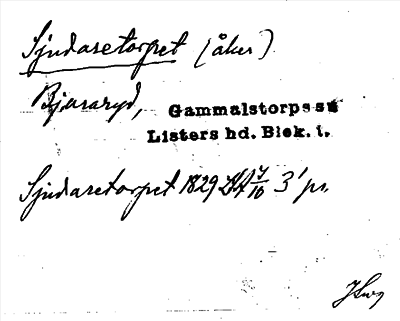 Sjudaretorpet (åker)
Bjäraryd, Gammalstorps sn
Listers hd. Blek. l.
Sjudaretorpet 1829 LA 7/10 3' pr.